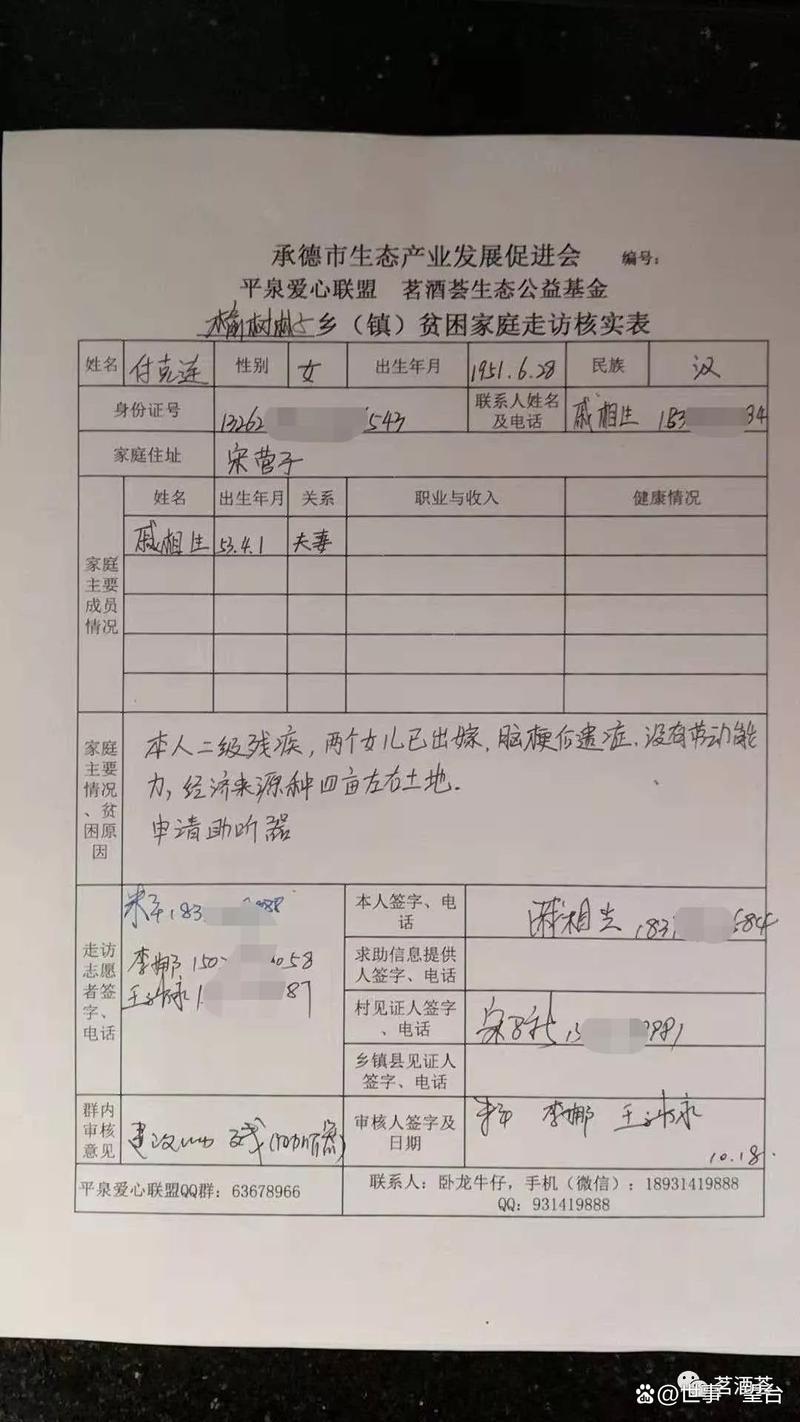 承德市生态产业发展促进会 编号：
平泉爱心联盟 茗酒荟生态公益基金
榆树林子乡（镇）贫困家庭走访核实表
姓名 付克连 性别 女 出生年月 1951.6.28 民族 汉
身份证号 13262 543 联系人姓名及电话 戚相生 183 34
家庭住址 宋营子
家庭主要成员情况
姓名 出生年月 关系 职业与收入 健康情况
戚相生 53.4.1 夫妻
家庭主要情况、贫困原因
本人二级残疾，两个女儿已出嫁，脑梗后遗症，没有劳动能
力，经济来源种四亩左右土地.
申请助听器
走访志愿者签字、电话
183 088
李娜 150 058
王 永 1 87
本人签字、电话 戚相生 183 584
求助信息提供人签字、电话
村见证人签字、电话 宋 15 9991
乡镇县见证人签字、电话
群内审核意见 建议 残(助听器)
审核人签字及日期 李娜 王 永
10.18.
平泉爱心联盟QQ群：63678966
联系人：卧龙牛仔，手机（微信）：18931419888
QQ：931419888
茗酒荟
@世事 望台